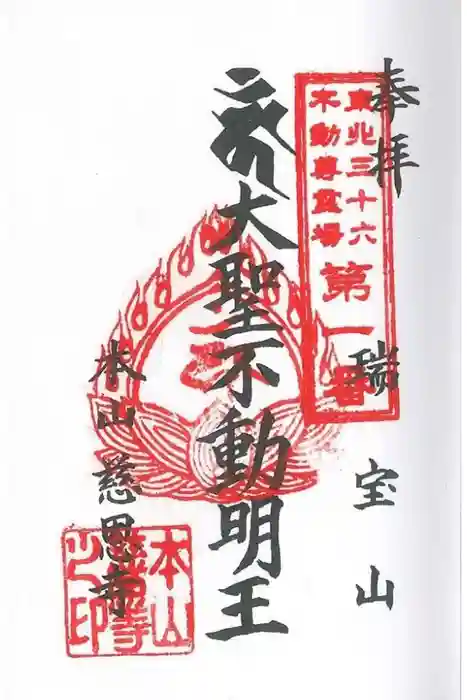 奉拝
瑞宝山
東北三十六
不動尊霊場
第一番
大聖不動明王
本山慈恩寺
本山
慈恩寺
之印